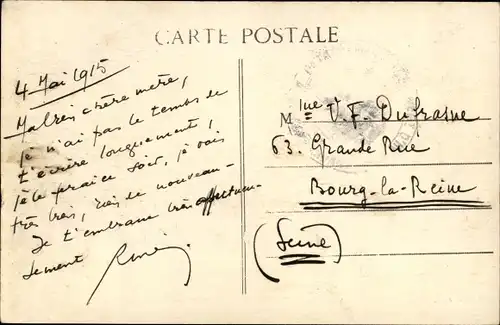 CARTE POSTALE
4 Mai 1915
chère mère,
je n'ai pas le temps de
t'écrire longuement,
je le ferai ce soir, je vais
très bien, rien de nouveau
Je t'embrasse très affectueu-
sement René
Mme V. F. Dufrasne
63. Grande Rue
Bourg-la-Reine
(Seine)